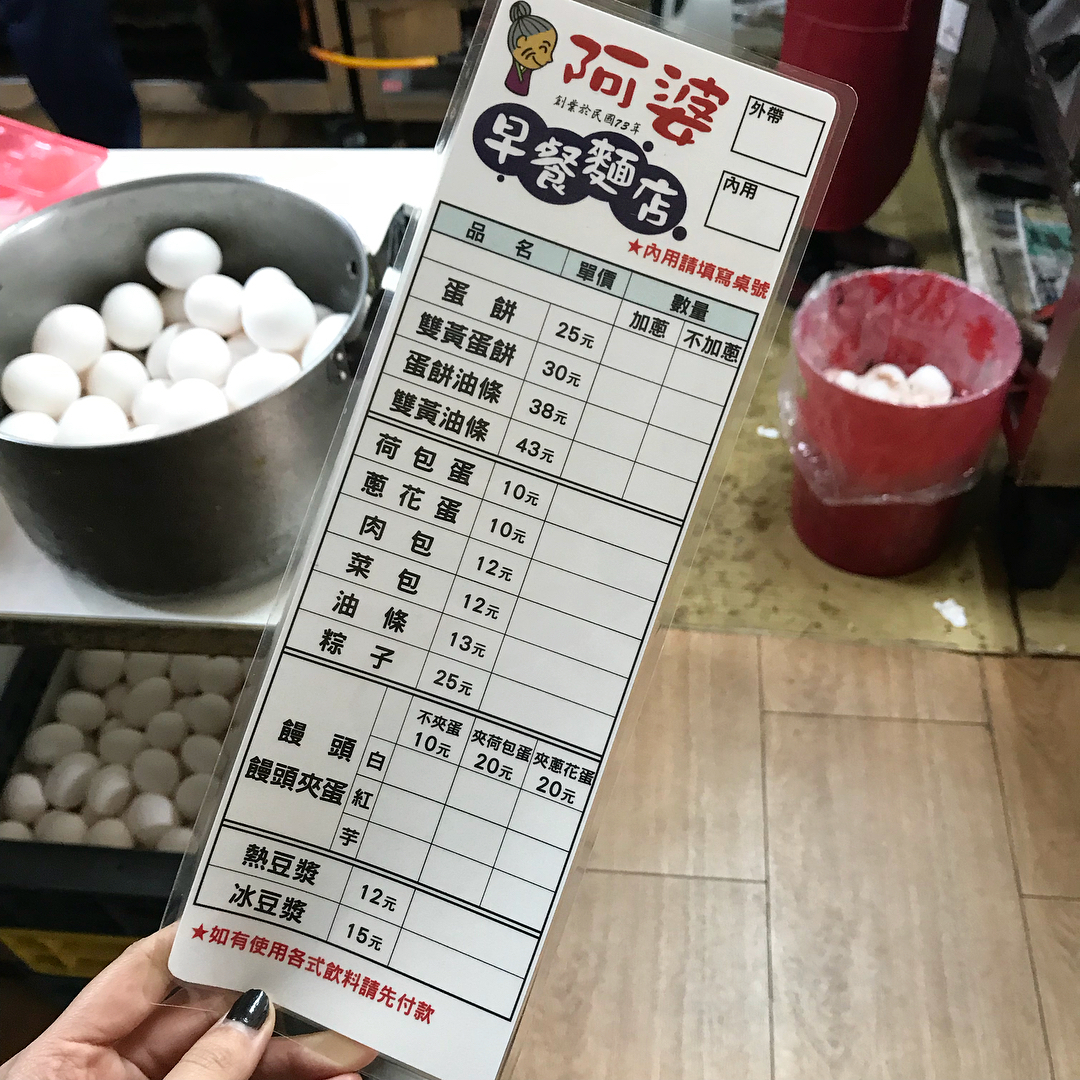 阿婆
創業於民國73年
早餐麵店
外帶
內用
★內用請填寫桌號
品名 單價 數量
加蔥 不加蔥
蛋餅 25元
雙黃蛋餅 30元
蛋餅油條 38元
雙黃油條 43元
荷包蛋 10元
蔥花蛋 10元
肉包 12元
菜包 12元
油條 13元
粽子 25元
饅頭
饅頭夾蛋
不夾蛋 10元
夾荷包蛋 20元
夾蔥花蛋 20元
白
紅
芋
熱豆漿 12元
冰豆漿 15元
★如有使用各式飲料請先付款